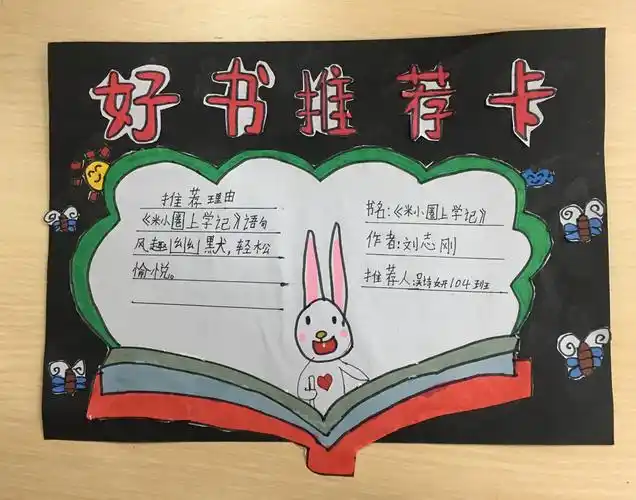 好书推荐卡
推荐理由
《米小圈上学记》语句
风趣幽幽黑犬,轻松
愉悦。
书名:《米小圈上学记》
作者:刘志刚
推荐人:吴诗妍104班